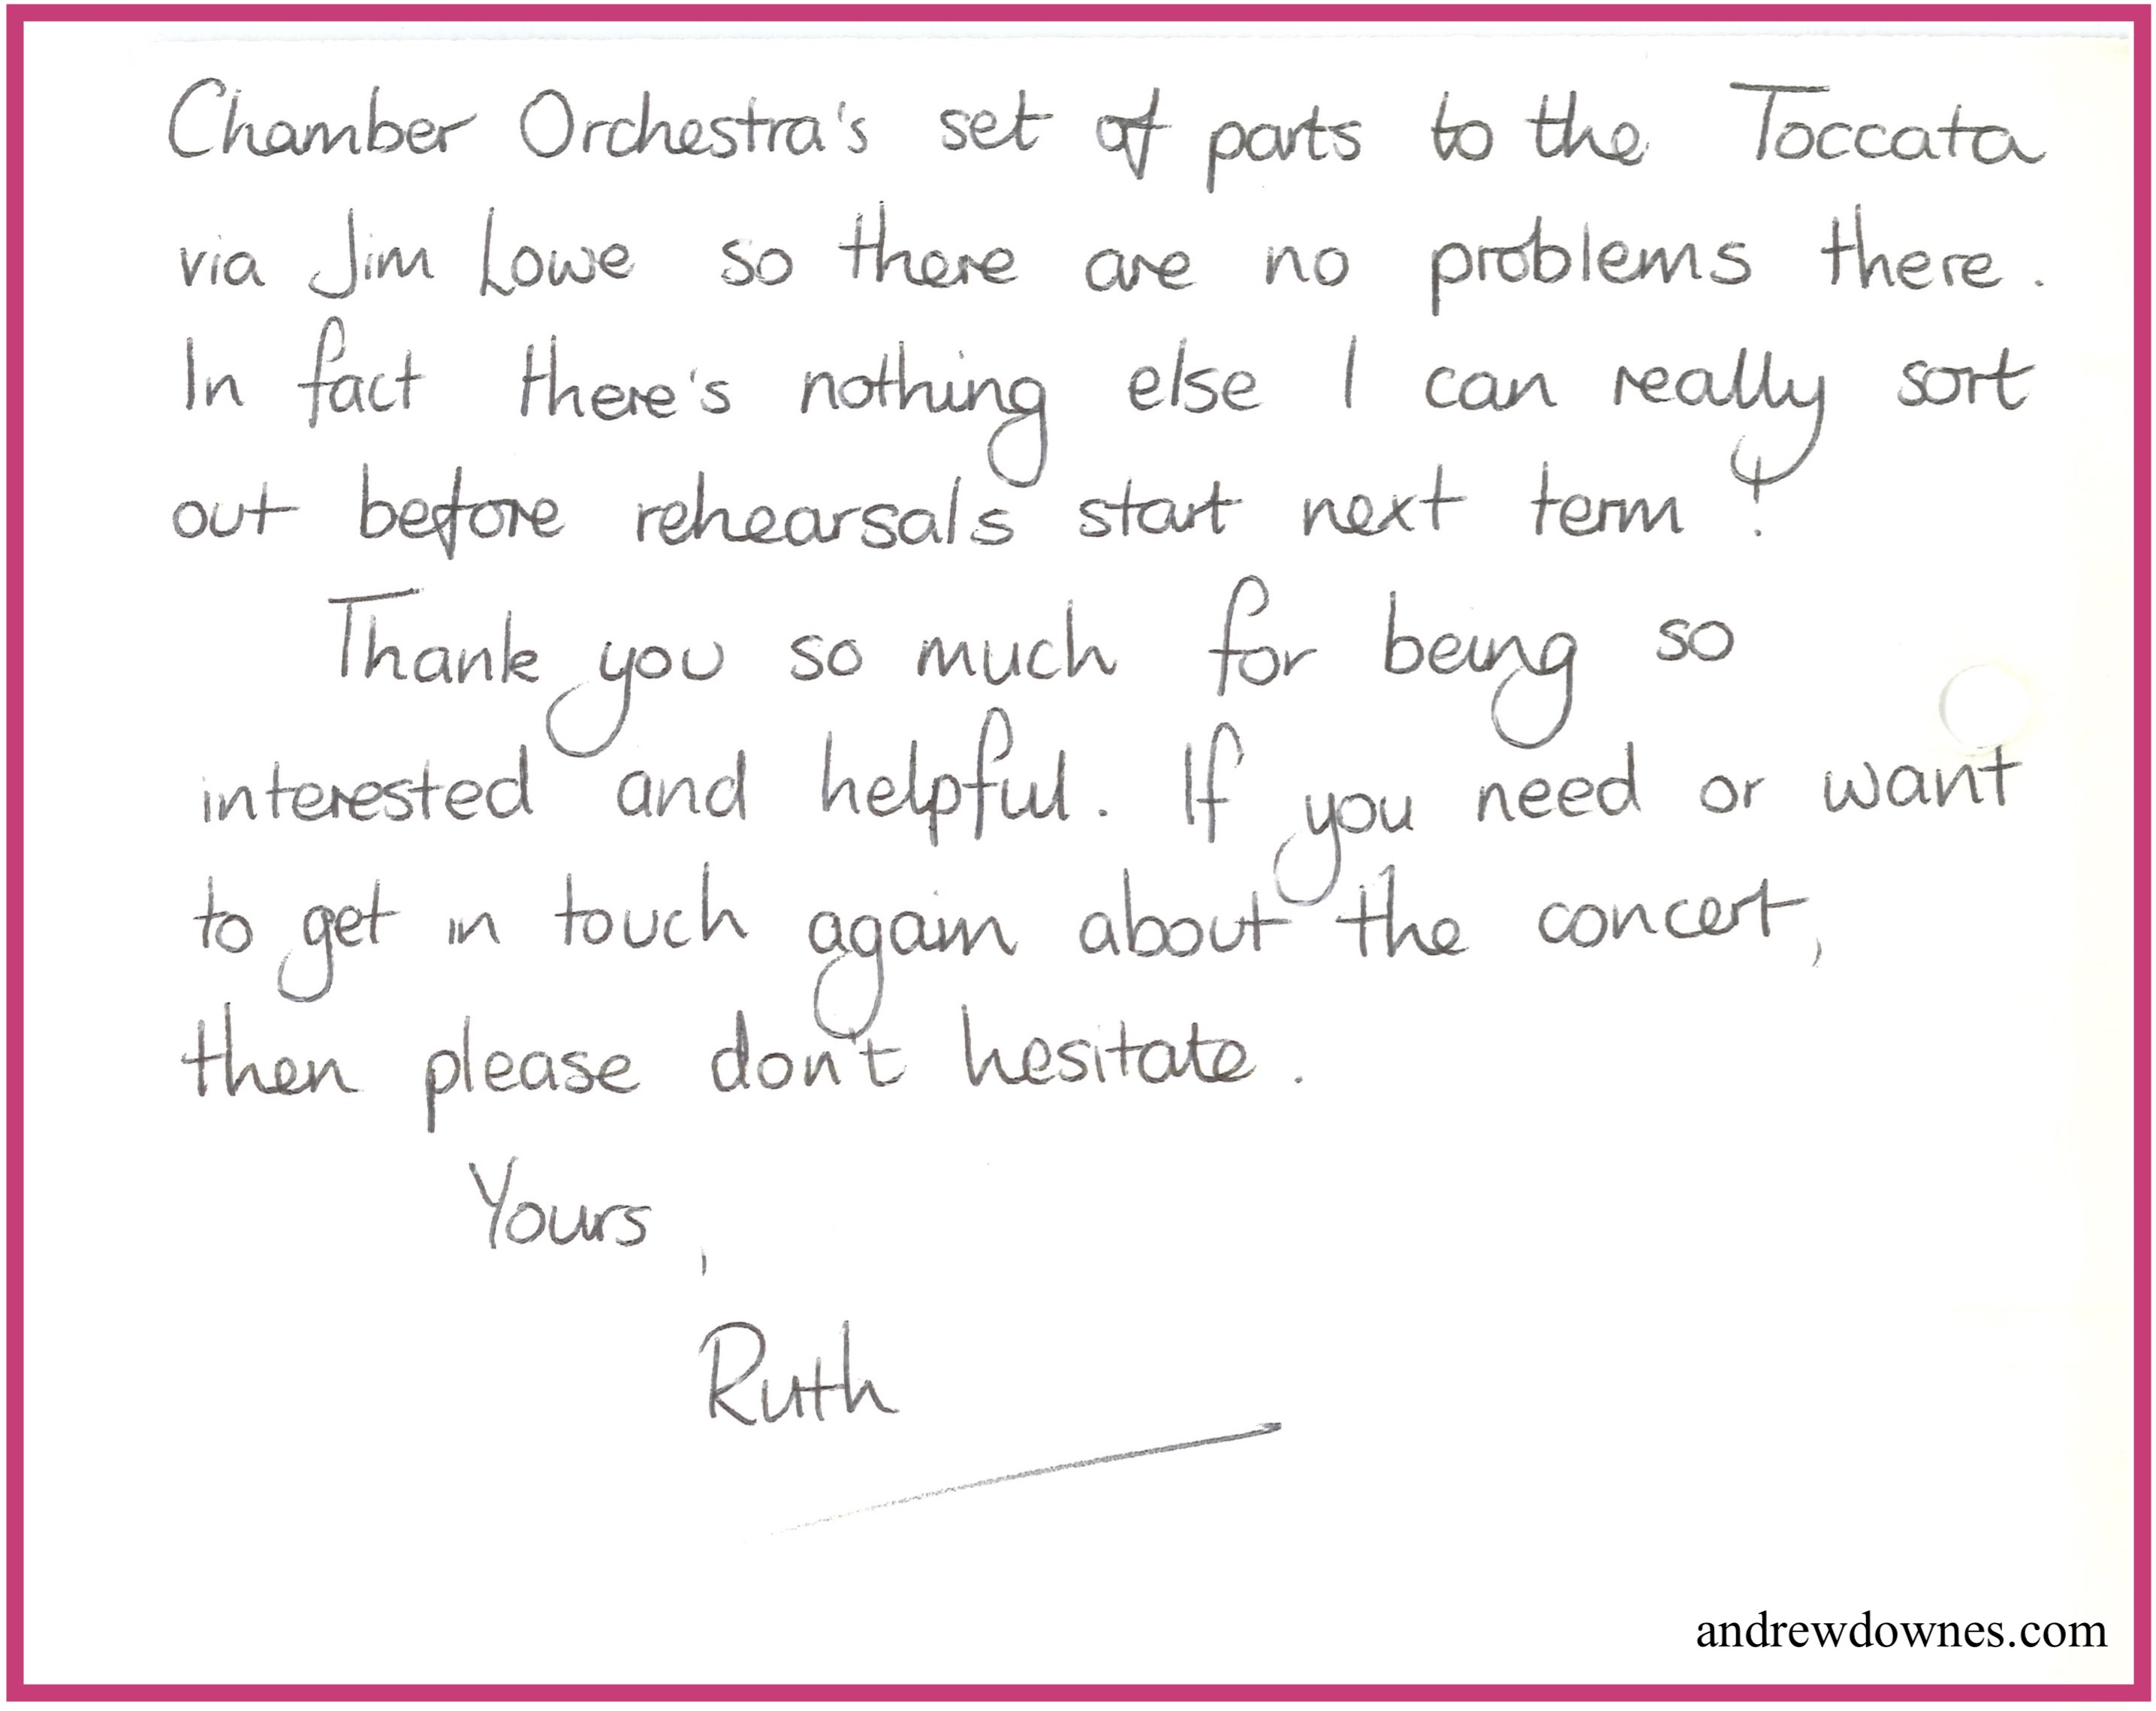 Chamber Orchestra's set of parts to the Toccata
via Jim Lowe so there are no problems there.
In fact there's nothing else I can really sort
out before rehearsals start next term!
Thank you so much for being so
interested and helpful. If you need or want
to get in touch again about the concert,
then please don't hesitate.
Yours,
Ruth
andrewdownes.com